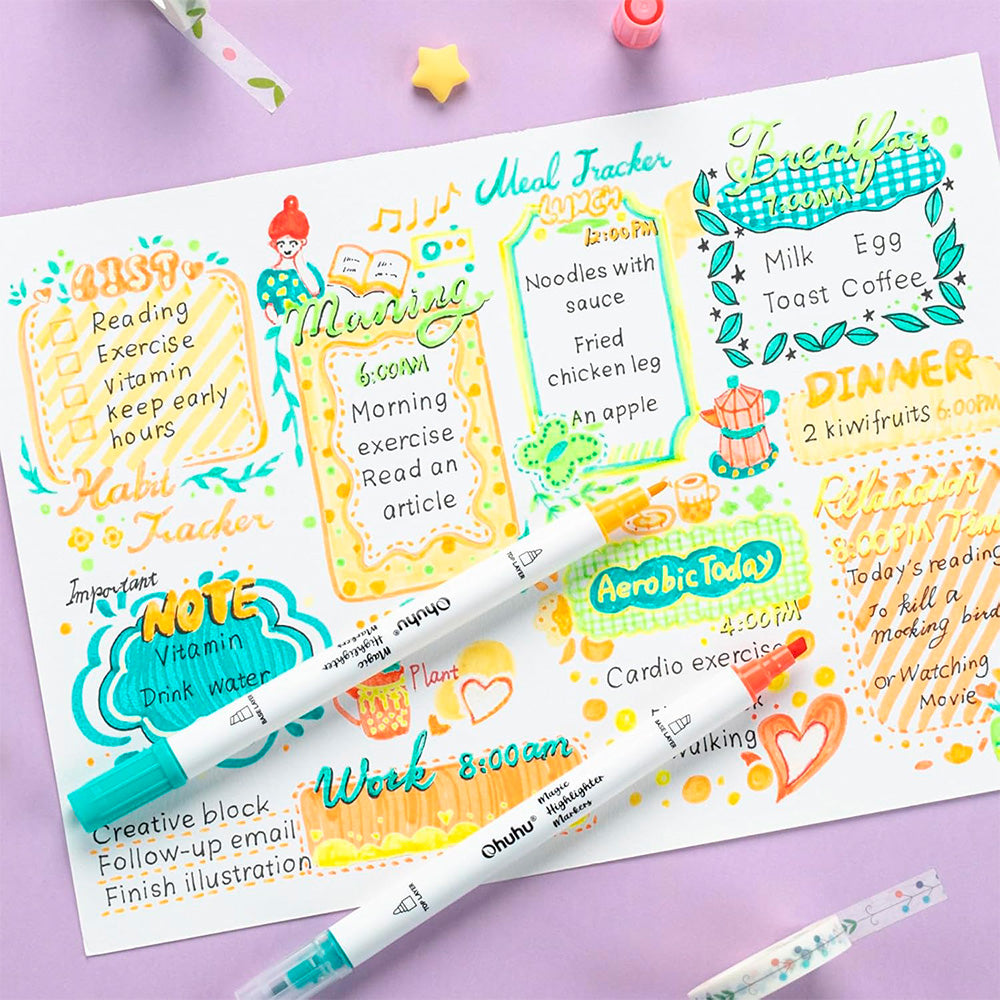 Meal Tracker
LIST
Reading
Exercise
Vitamin
keep early
hours
Habit
Tracker
Maning
6:00AM
Morning
exercise
Read an
article
LUNCH
12:00PM
Noodles with
sauce
Fried
chicken leg
An apple
Breakfast
7:00AM
Milk Egg
Toast Coffee
DINNER
2 kiwifruits 6:00PM
Relaxation
8:00PM Time
Today's reading
To kill a
mocking bird
or Watching
Movie
Important
NOTE
Vitamin
Drink water
Plant
Aerobic Today
4:00PM
Cardio exercise
Walking
Work 8:00am
Creative block
Follow-up email
Finish illustration
TOP LAYER
Ohuhu®
Magic
Highlighter
Markers
BASE LAYER
BASE LAYER
Magic
Highlighter
Markers
Ohuhu®
TOP LAYER